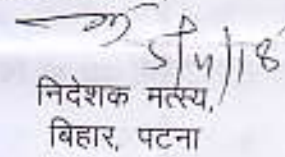 5/4/18
निदेशक मत्स्य,
बिहार, पटना